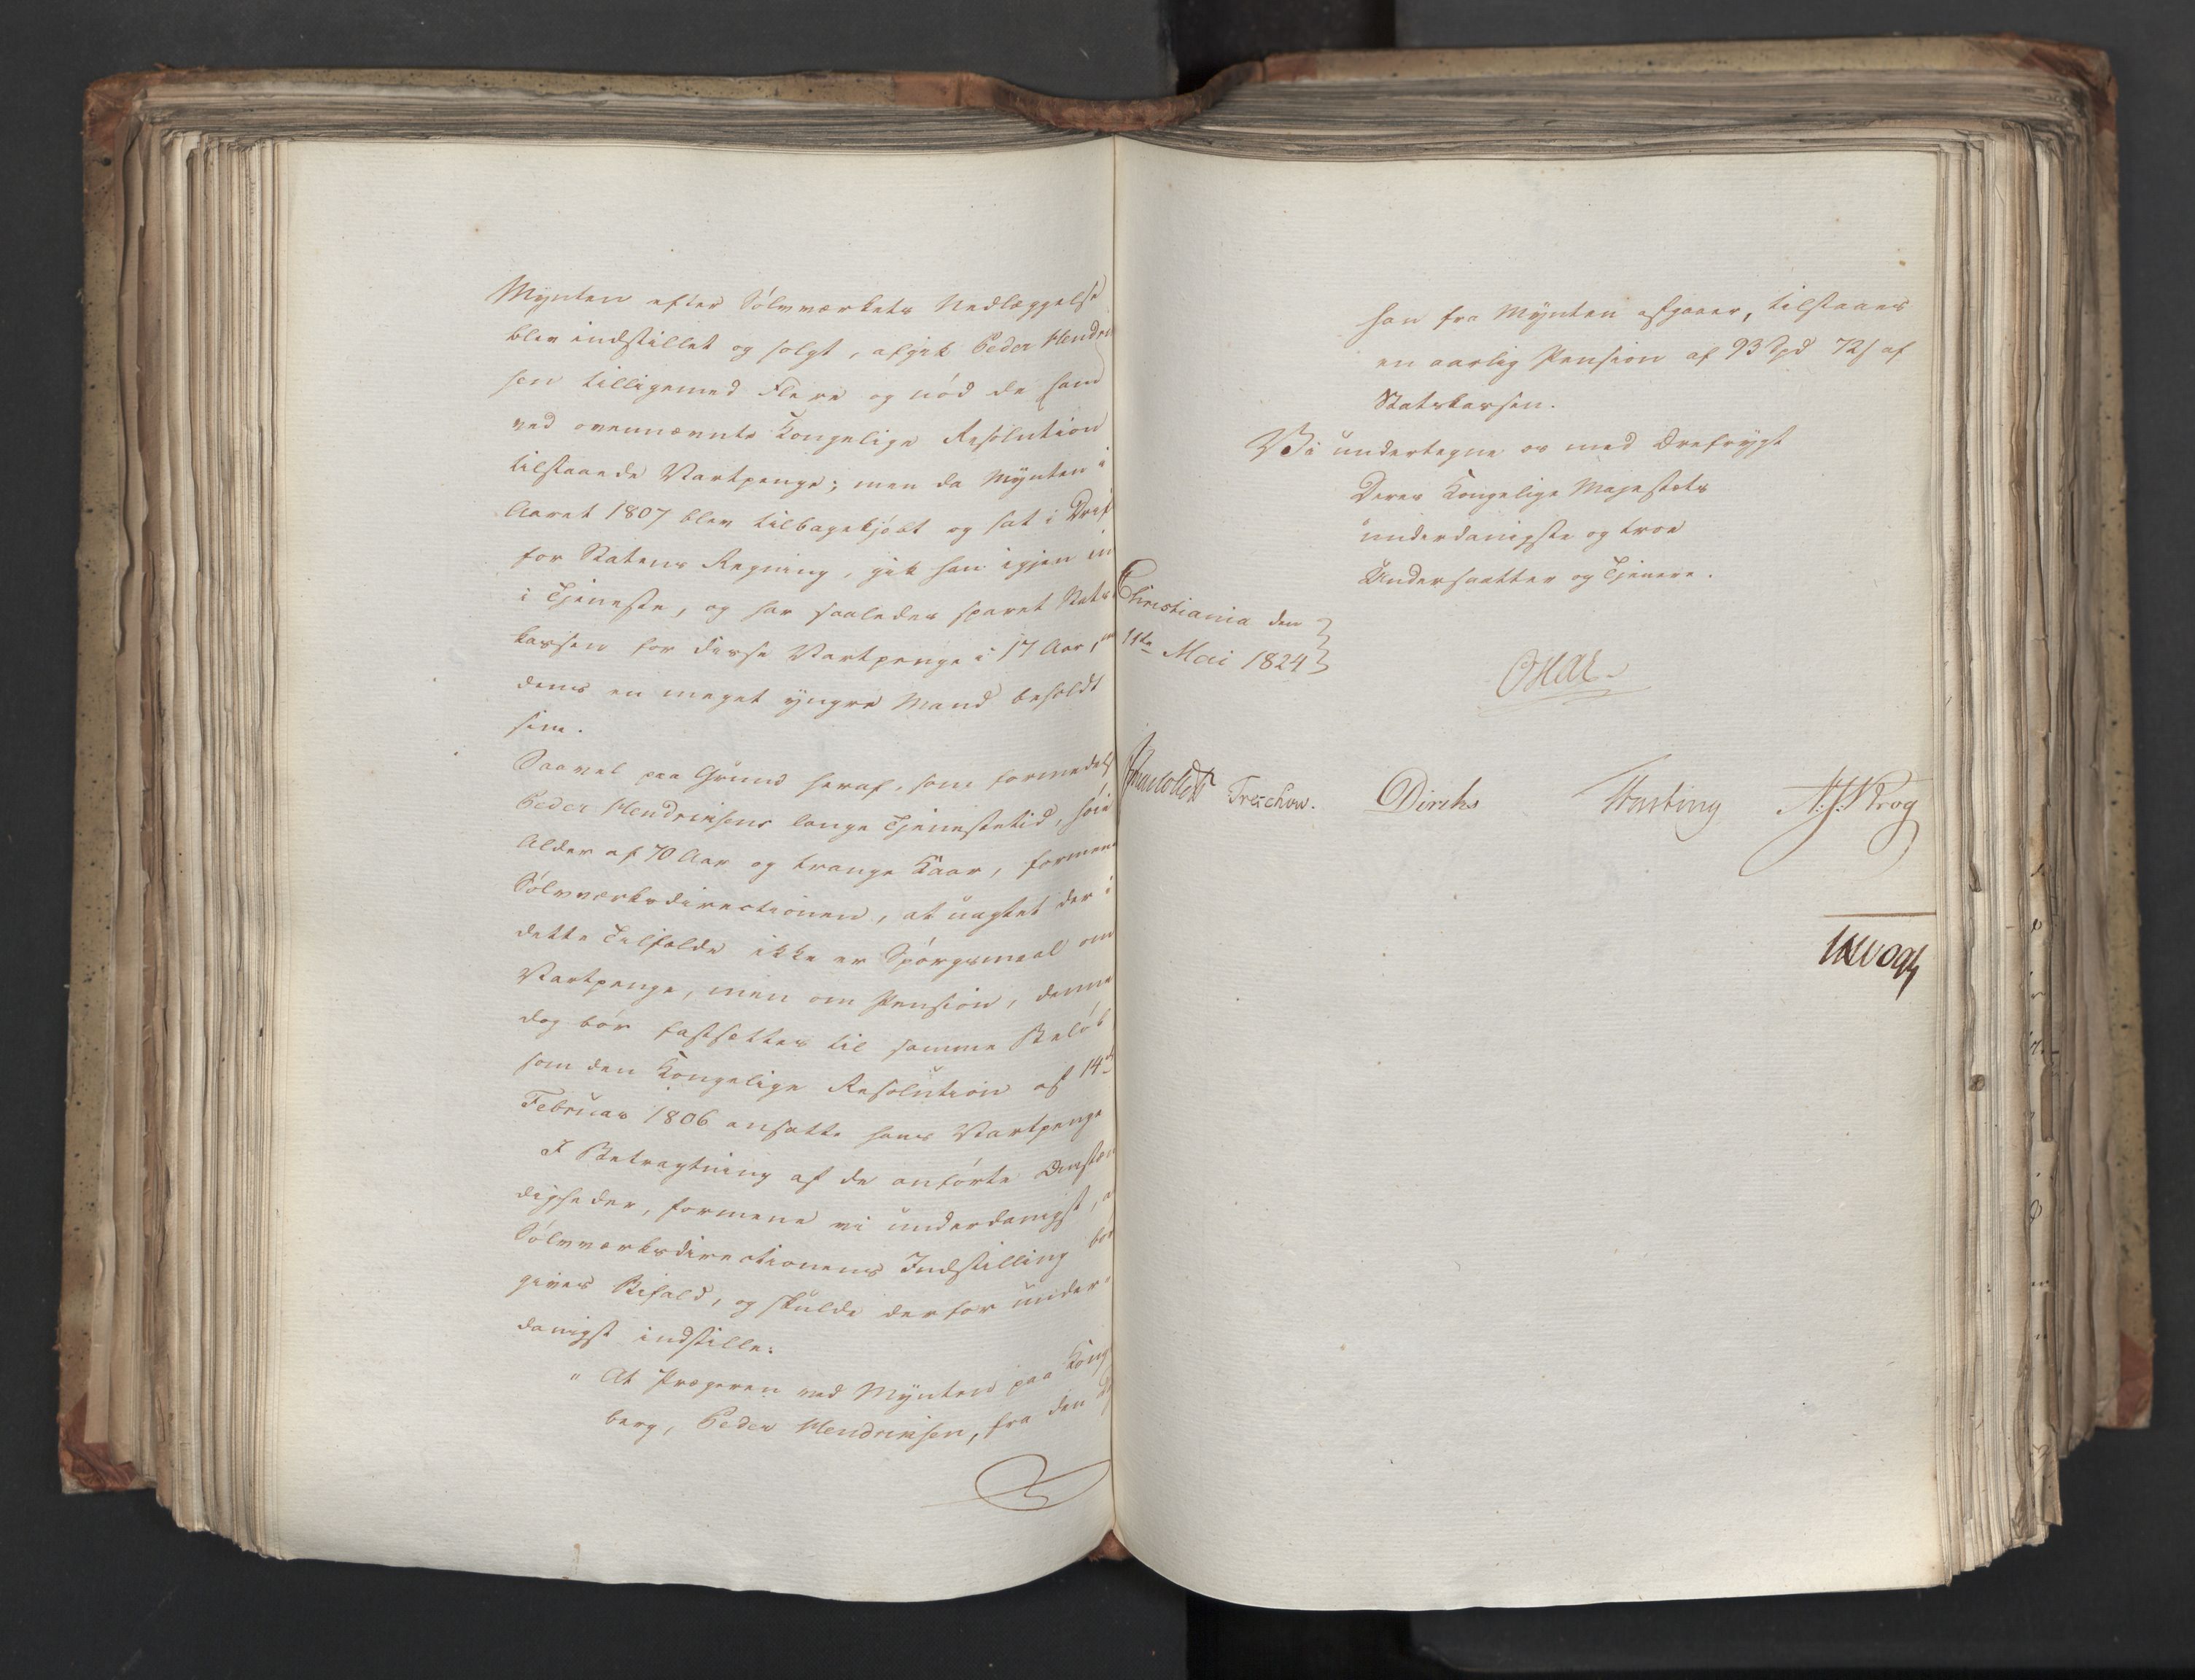 Mynten efter Sølvværkets Nedlæggelse
blev indstillet og solgt, afgik Peder Hendri
sen tilligemed Flere og nød de ham
ved ovennævnte Kongelige Resolution
tilstaaede Vartpenge; men da Mynten i
Aaret 1807 blev tilbagekjøbt og sat i Drif
for Statens Regning, gik han igjen in
i Tjeneste, og har saaledes sparet Stats
kassen for disse Vartpenge i 17 Aar,
dens en meget yngre Mand beholdt
sin.
Saavel paa Grund heraf, som formedelst
Peder Hendriksens lange Tjenestetid, høie
Alder af 70 Aar og trange Kaar, formene
Sølvværksdirectionen, at uagtet der i
dette Tilfælde ikke er Spørgsmaal om
Vartpenge, men om Pension, denne
dog bør fastsættes til samme Beløb
som den Kongelige Resolution af 14de
Februar 1806 ansatte hans Vartpenge
I Betragtning af de anførte Omstæn
digheder, formene vi underdanigst, a
Sølvværksdirectionens Indstilling bør
gives Bifald, og skulde derfor under
danigst indstille:
" At Prægeren ved Mynten paa Kongs
berg, Peder Hendriksen, fra den
han fra Mynten afgaaer, tilstaaes
en aarlig Pension af 93 Spd 72 s af
Statskassen.
Vi undertegne os med Ærefrygt
Deres Kongelige Majestæts
underdanigste og troe
Undersaatter og Tjenere.
Christiania den
11te Mai 1824
Oscar.
JCollett Treschow. Diriks Hartung A: J: Krog
JHVogt